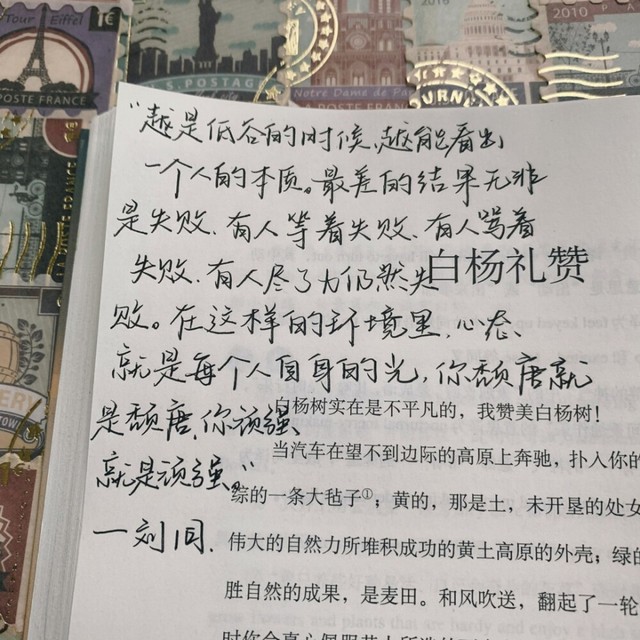 Tour Eiffel
1€
POSTE FRANCE
U.S. POSTAGE
Notre Dame de Pa
POSTE FRANCE
2016
URN
2010
“越是低谷的时候、越能看出
一个人的本质。最差的结果无非
是失败、有人等着失败、有人骂着
失败、有人尽了力仍然失
白杨礼赞
败。在这样的环境里、心态、
就是每个人自身的光，你颓唐就
是颓唐、你顽强、
就是顽强。”
一刻旧、
白杨树实在是不平凡的，我赞美白杨树！
当汽车在望不到边际的高原上奔驰，扑入你的
综的一条大毡子①；黄的，那是土，未开垦的处女
伟大的自然力所堆积成功的黄土高原的外壳；绿的
胜自然的成果，是麦田。和风吹送，翻起了一轮